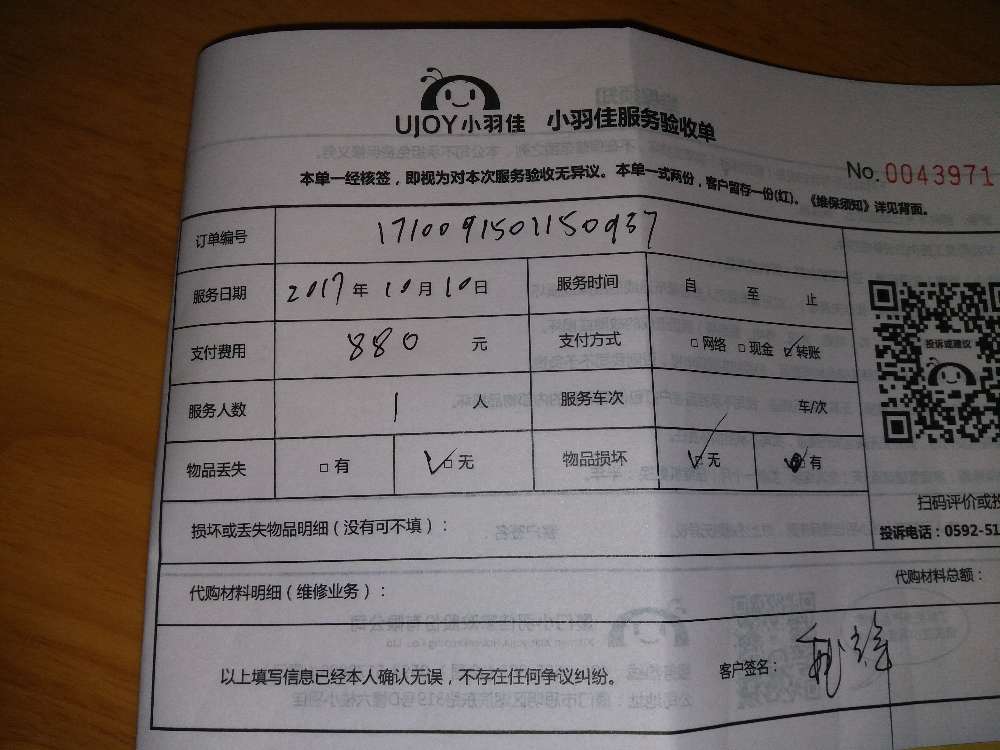 UJOY小羽佳 小羽佳服务验收单
No.0043971
本单一经核签，即视为对本次服务验收无异议。本单一式两份，客户留存一份(红)。《维保须知》详见背面。
订单编号 1710091501150937
服务日期 2017年10月10日 服务时间 自 至 止
支付费用 880 元 支付方式 □网络 □现金 ☑转账
投诉或建议
服务人数 1 人 服务车次 车/次
物品丢失 □有 ☑无 物品损坏 ☑无 □有
扫码评价或投
损坏或丢失物品明细（没有可不填）：
投诉电话：0592-51
代购材料明细（维修业务）： 代购材料总额：
以上填写信息已经本人确认无误，不存在任何争议纠纷。 客户签名：